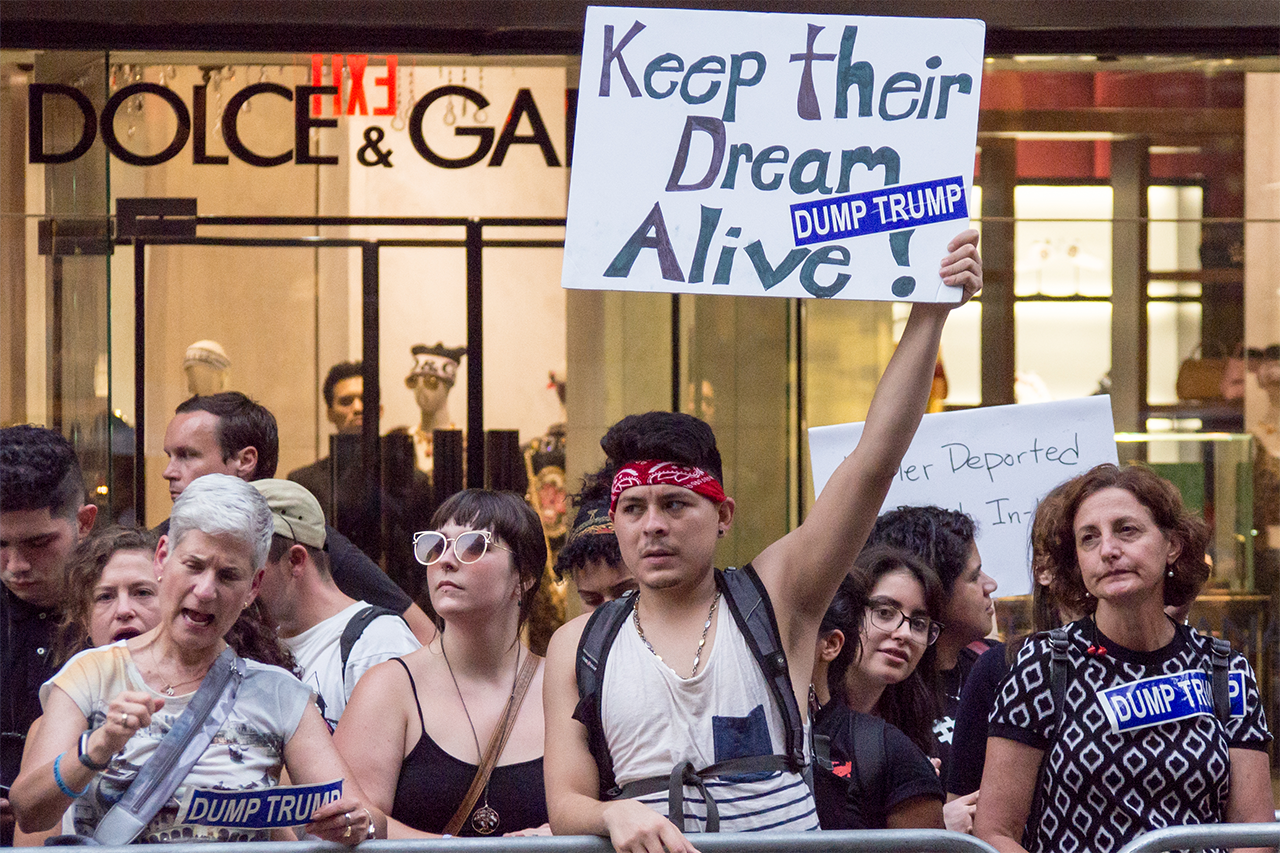 EXIT
DOLCE & GA
Keep Their
Dream
Alive!
DUMP TRUMP
Deported
DUMP TRUMP
DUMP TRUMP